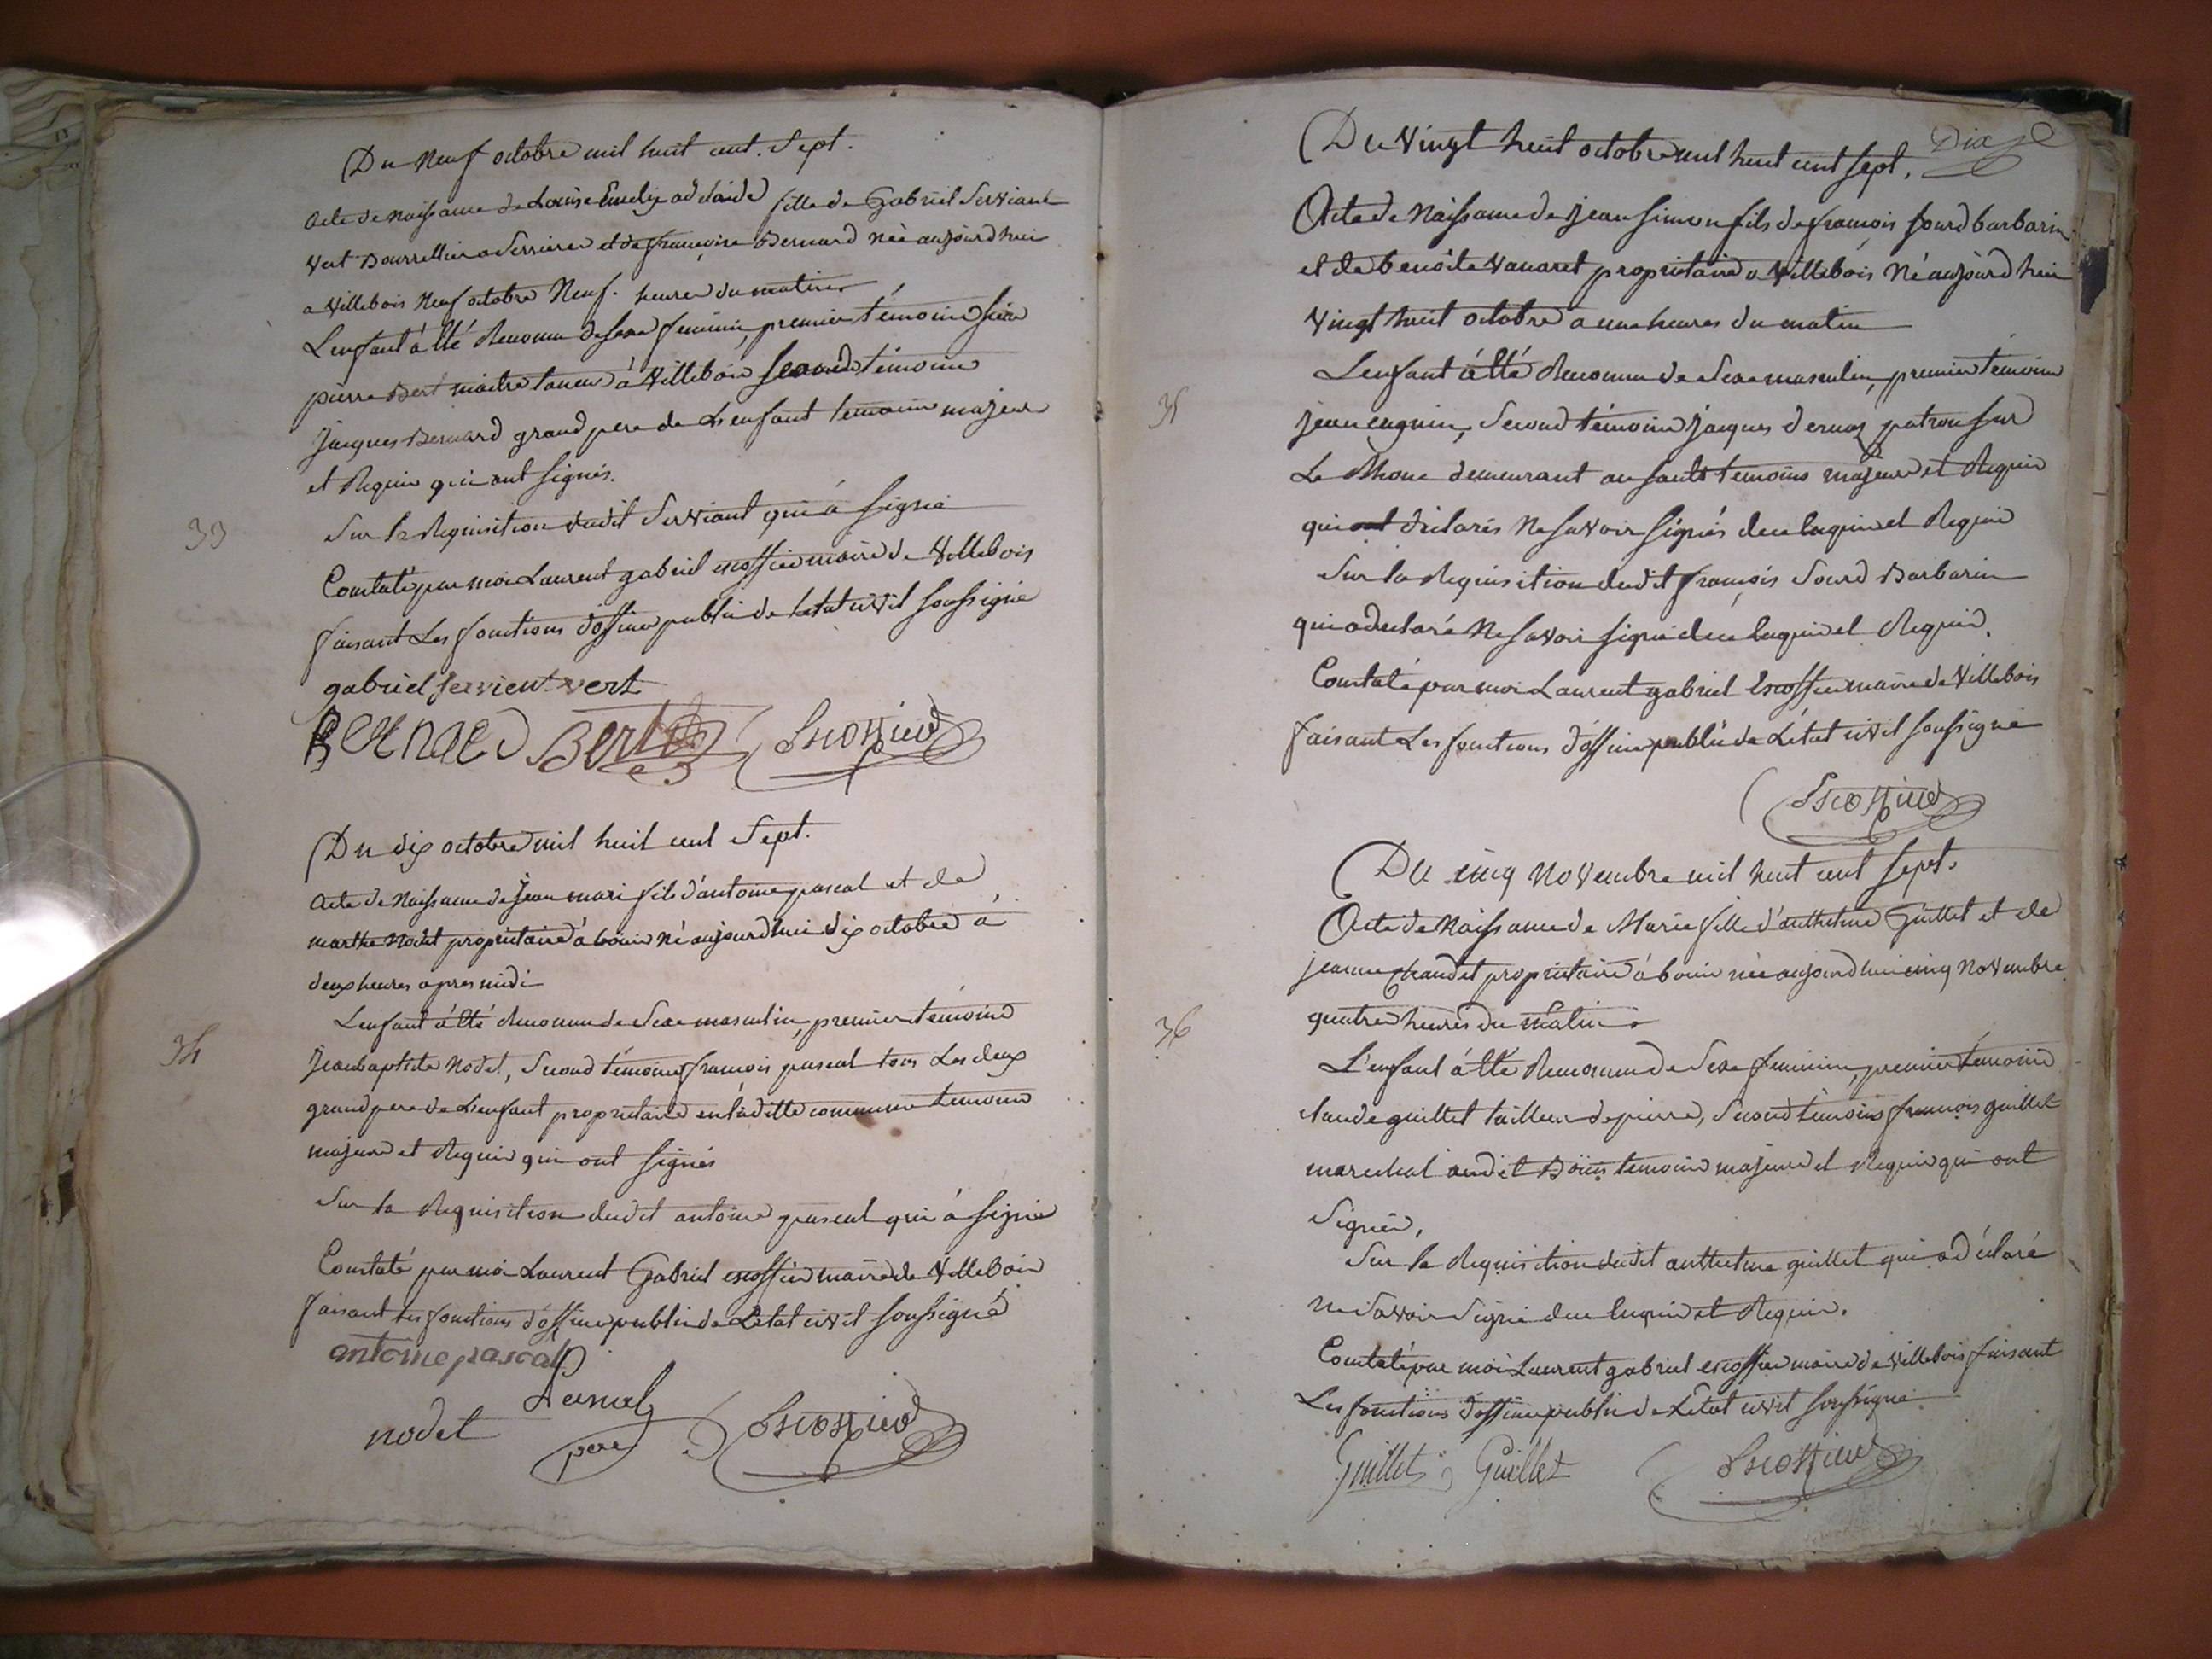 Du Neuf octobre mil huit cent. Sept.
Acte de Naissance de Louise Emelye adelaide fille de Gabriel Serviant
Vert Bourrellier a Serrieres et de françoise Bernard née aujourd'hui
a Villebois Neuf octobre Neuf. heures du matin
L'enfant à été Reconnu de sexe feminin, premier témoin sieur
pierre Bert maitre taneur à Villebois second témoin
Jacques Bernard grand pere de L'enfant temoins majeurs
et Requis qui ont signés.
33
Sur la Requisition dudit Serviant qui à signé
Constaté par moi Laurent gabriel escoffier maire de Villebois
faisant Les fonctions d'officier public de letat civil soussigné
gabriel servient vert
Bernard Bert Escoffier
Du dix octobre mil huit cent Sept.
Acte de Naissance de Jean mari fils d'antoine pascal et de
marthe Nodet propriétaire à bouis né aujourd'hui dix octobre à
deux heures apres midi
L'enfant à été Reconnu de Sexe masculin, premier témoin
34
Jean baptiste Nodet, Second témoin françois pascal tous Les deux
grand pere de L'enfant propriétaire en ladite commune temoins
majeurs et Requis qui ont signés
Sur la Requisition dudit antoine pascal qui à signé
Constaté par moi Laurent Gabriel escoffier maire de Villebois
faisant les fonctions d'officier public de Letat civil soussigné
antoine pascal
nodet Pascal Escoffier
pere
Dix
Du Vingt huit octobre mil huit cent sept.
Acte de Naissance de jean simon fils de françois sourd barbarin
et de benoite Vanaret propriétaire a Villebois Né aujourd'hui
Vingt huit octobre a une heures du matin
L'enfant à été Reconnu de Sexe masculin, premier témoin
35
jean cuguin, Second témoin jacques dernaz patron sur
Le Rhone demeurant au saults temoins majeurs et Requis
qui ont déclarés Ne savoir signés de ce enquis et Requis
Sur la Requisition dudit françois Sourd Barbarin
qui a declaré Ne savoir signé de ce enquis et Requis.
Constaté par moi Laurent gabriel Escoffier maire de Villebois
faisant Les fonctions d'officier public de L'état civil soussigné
Escoffier
Du cinq Novembre mil huit cent sept.
Acte de Naissance de Marie fille d'anthelme Guillet et de
jeanne Chaudet propriétaire à bouis née aujourdhui cinq Novembre
36
quatre heures du matin
L'enfant à été Reconnu de Sexe feminin, premier témoin
claude guillet tailleur de pierre, Second témoin françois guillet
marechal audit Bouis temoins majeurs et Requis qui ont
Signés.
Sur la Requisition dudit anthelme guillet qui a déclaré
ne Savoir Signé de ce enquis et Requis.
Constaté par moi Laurent gabriel escoffier maire de Villebois faisant
Les fonctions d'officier public de Létat civil soussigné
Guillet Guillet Escoffier